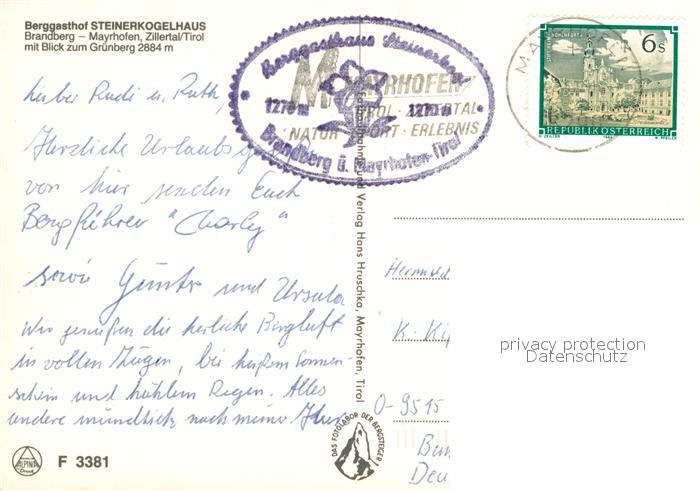 Berggasthof STEINERKOGELHAUS
Brandberg – Mayrhofen, Zillertal/Tirol
mit Blick zum Grünberg 2884 m
Berggasthaus Steinerkogel
MAYRHOFEN
1270 m 1270 m
TIROL · ZILLERTAL
NATUR · SPORT · ERLEBNIS
Brandberg ü. Mayrhofen-Tirol
6 S
REPUBLIK ÖSTERREICH
lieber Rudi u. Ruth,
Herzliche Urlaubsg
von hier senden Euch
Bergführer "Charly"
sowie Günter und Ursula
Wir genießen die herliche Bergluft
in vollen Zügen, bei heißem Sonnen-
schein und kühlem Regen. Alles
andere mündlich nach meine
Verlag Hans Hruschka, Mayrhofen, Tirol
K.-Ki
privacy protection
Datenschutz
O-9515
Deu
DAS FOTOLABOR DER BERGSTEIGER
ALPINA
Druck
F 3381